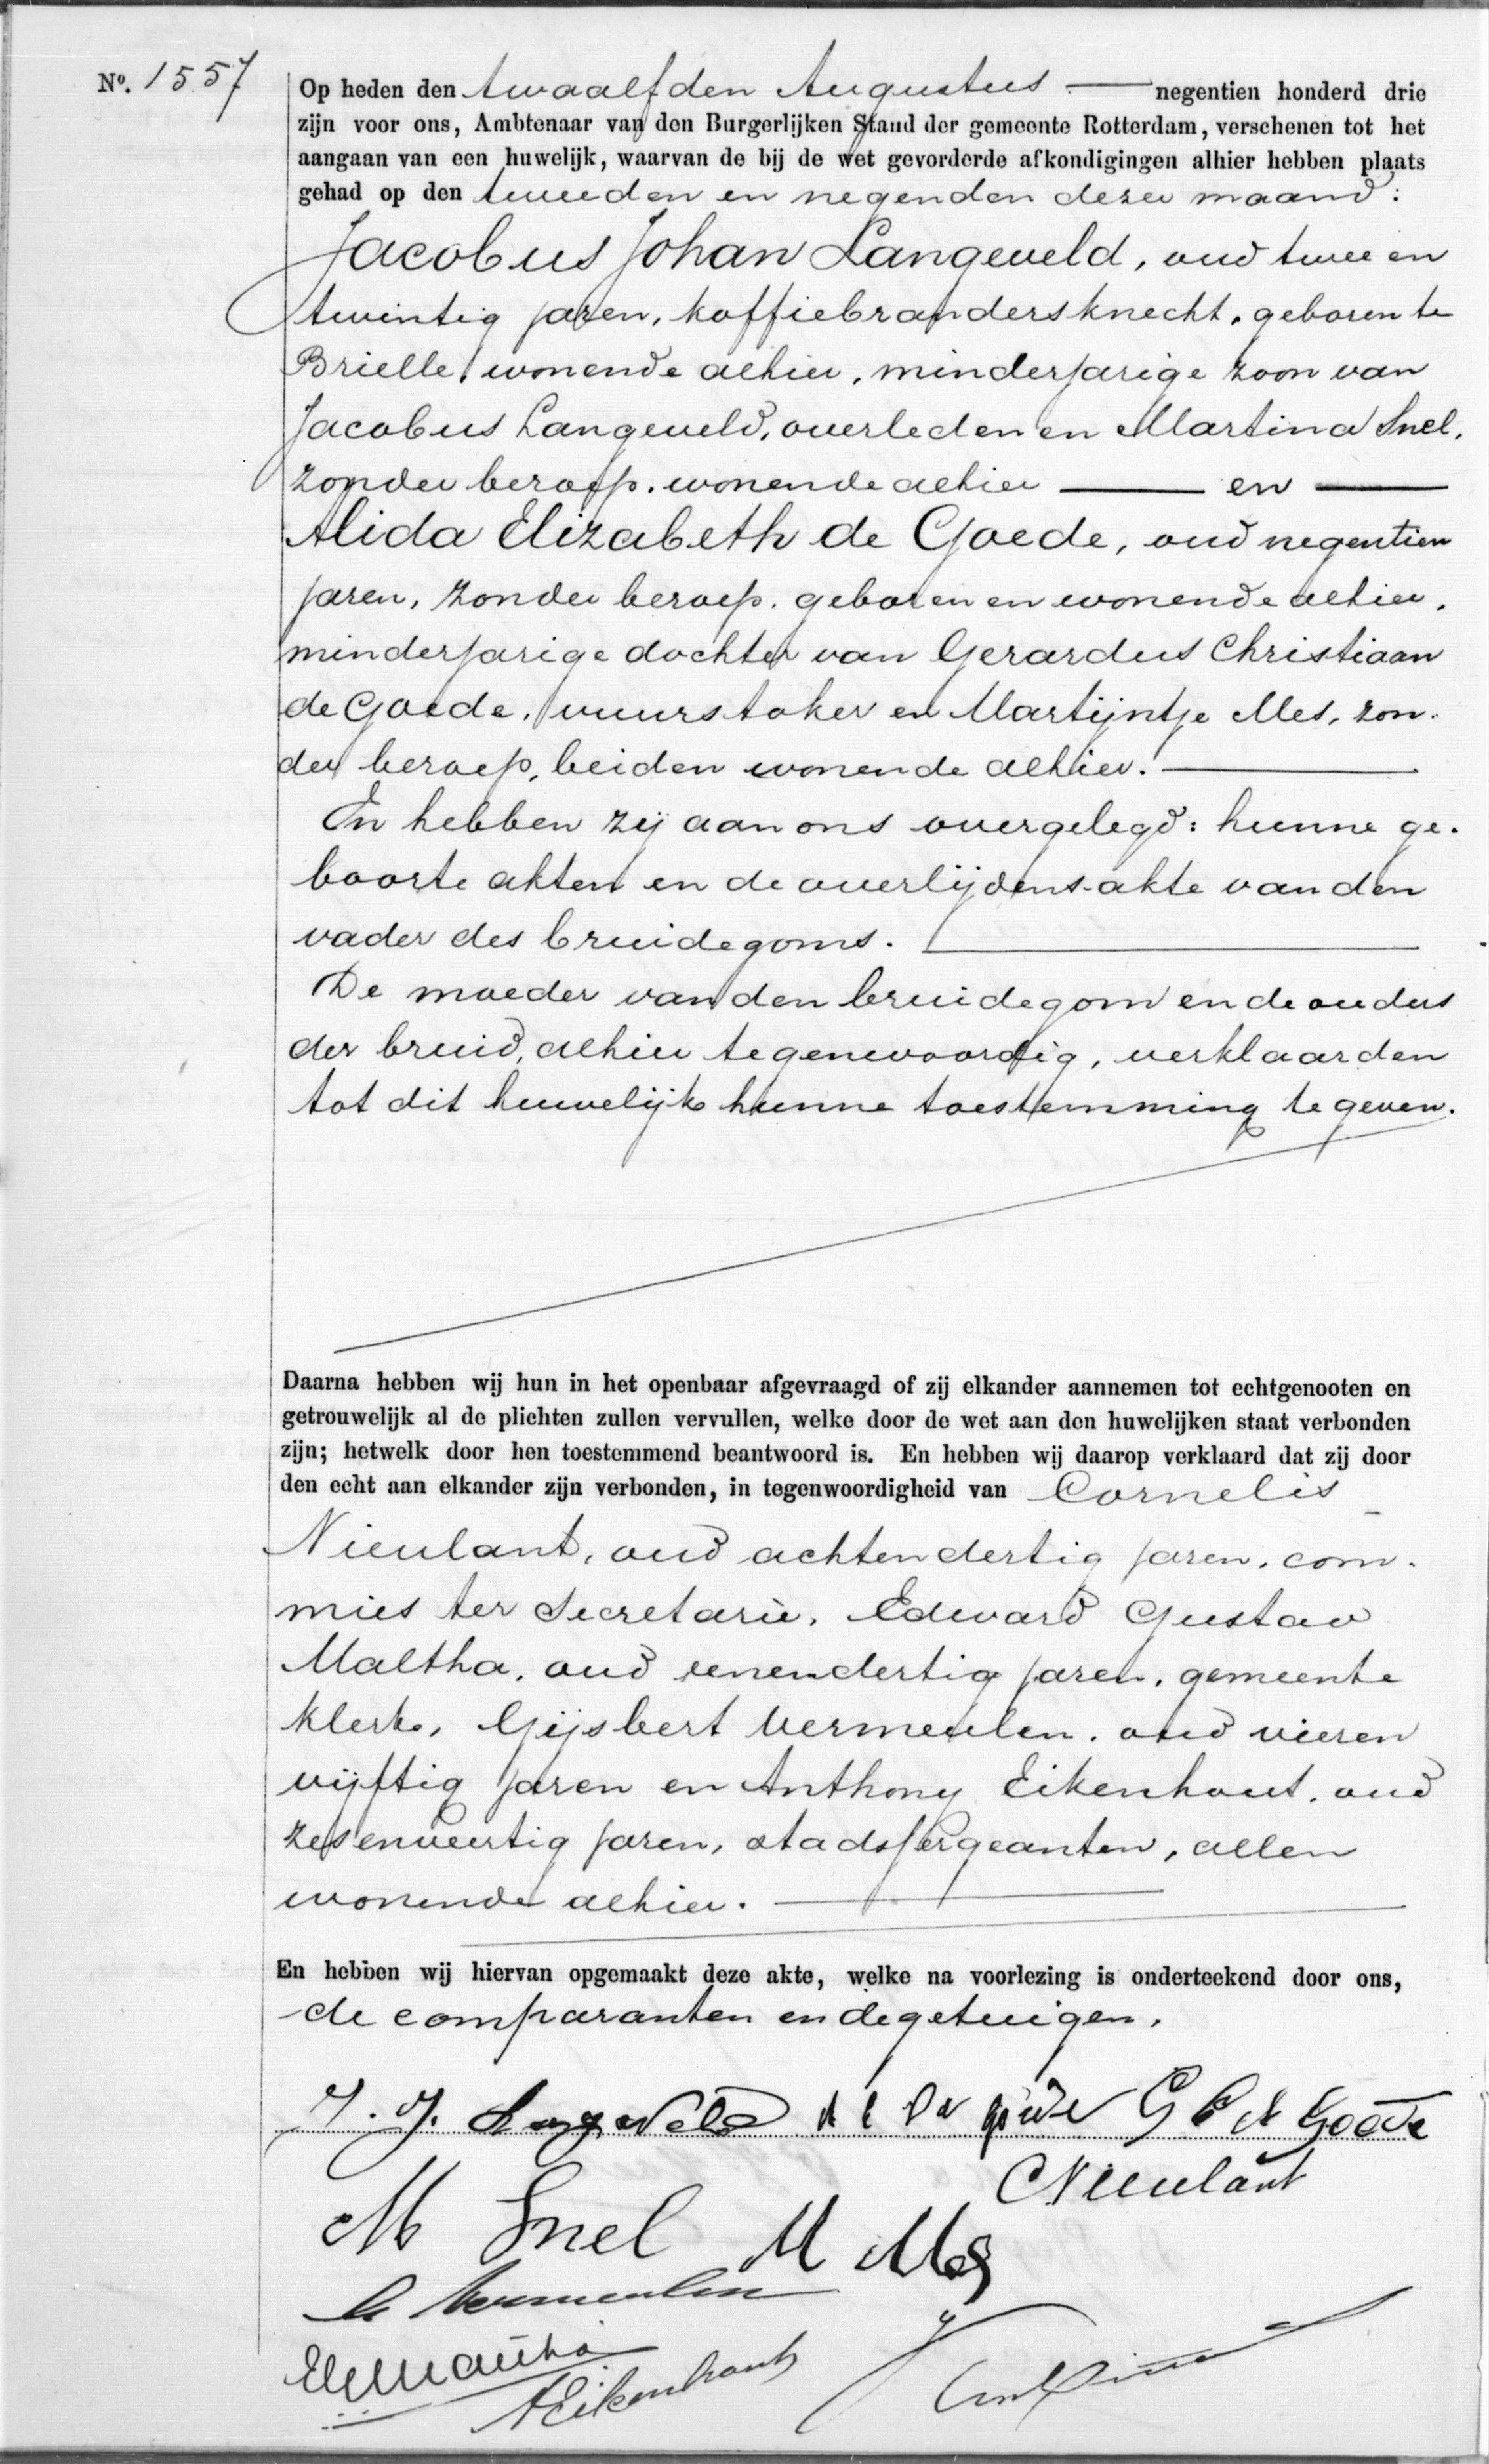 No. 1557
Op heden den twaalfden Augustus — negentien honderd drie
zijn voor ons, Ambtenaar van den Burgerlijken Stand der gemeente Rotterdam, verschenen tot het
aangaan van een huwelijk, waarvan de bij de wet gevorderde afkondigingen alhier hebben plaats
gehad op den tweeden en negenden dezer maand:
Jacobus Johan Langeveld, oud twee en
twintig jaren, koffiebrandersknecht, geboren te
Brielle, wonende alhier, minderjarige zoon van
Jacobus Langeveld, overleden en Martina Snel,
zonder beroep, wonende alhier — en —
Alida Elizabeth de Goede, oud negentien
jaren, zonder beroep, geboren en wonende alhier,
minderjarige dochter van Gerardus Christiaan
de Goede, vuurstoker en Martijntje Mes, zon-
der beroep, beiden wonende alhier. —
En hebben zij aan ons overgelegd: hunne ge-
boorte akten en de overlijdens-akte van den
vader des bruidegoms. —
De moeder van den bruidegom en de ouders
der bruid, alhier tegenwoordig, verklaarden
tot dit huwelijk hunne toestemming te geven.
Daarna hebben wij hun in het openbaar afgevraagd of zij elkander aannemen tot echtgenooten en
getrouwelijk al de plichten zullen vervullen, welke door de wet aan den huwelijken staat verbonden
zijn; hetwelk door hen toestemmend beantwoord is. En hebben wij daarop verklaard dat zij door
den echt aan elkander zijn verbonden, in tegenwoordigheid van Cornelis
Nieulant, oud achtendertig jaren, com-
mies ter Secretarie, Edward Gustav
Maltha, oud eenendertig jaren, gemeente
klerk, Gijsbert Vermeulen, oud vieren
vijftig jaren en Anthony Eikenhout, oud
zesenveertig jaren, stadssergeanten, allen
wonende alhier. —
En hebben wij hiervan opgemaakt deze akte, welke na voorlezing is onderteekend door ons,
de comparanten en de getuigen.
J. J. Langeveld A E de goede G C de Goede
CNieulant
M Snel M Mes
G Vermeulen
EGMaltha
AEikenhout